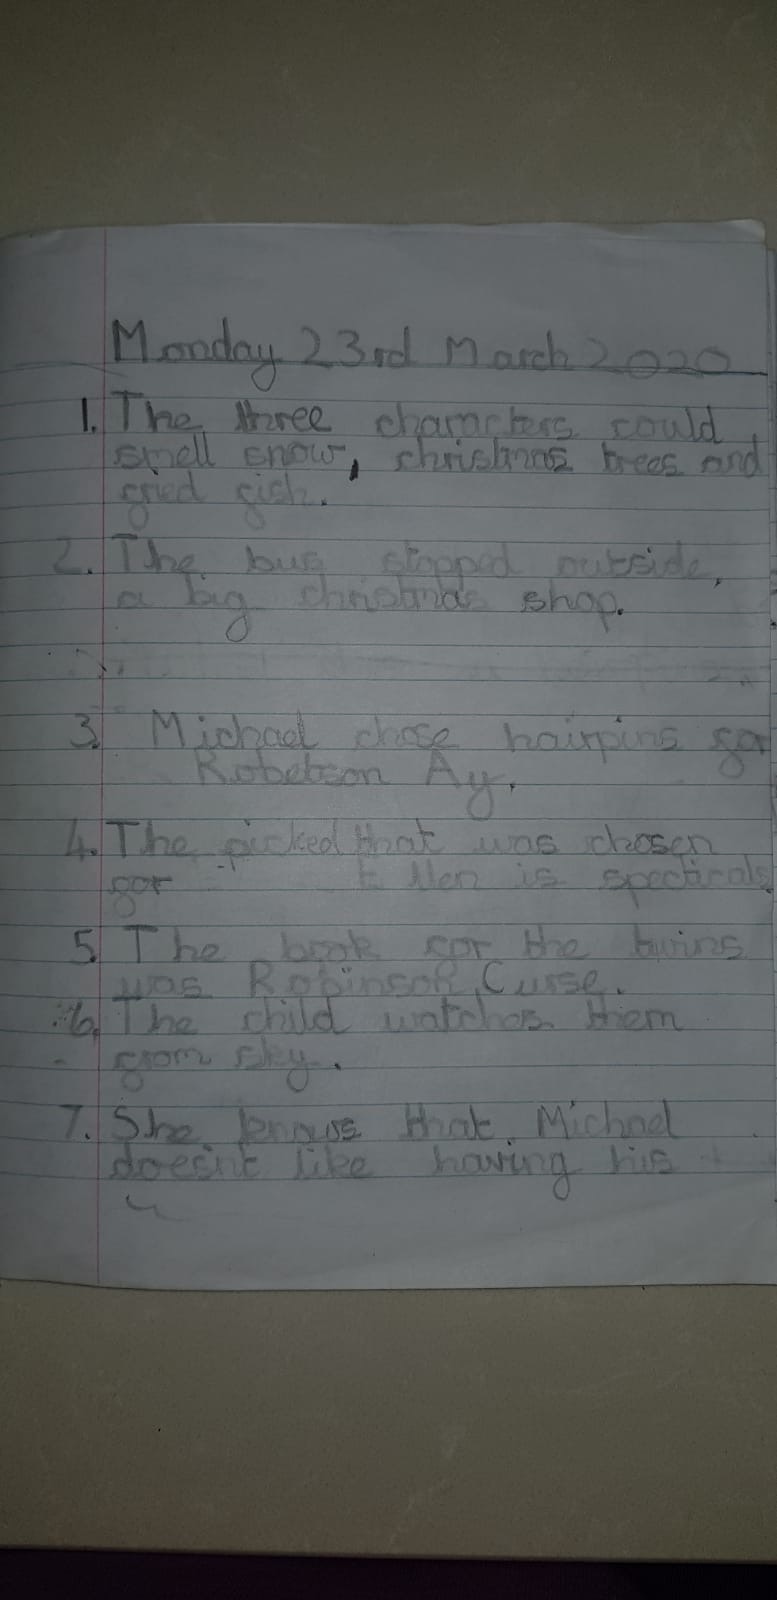 Monday 23rd March 2020
1. The three characters could
smell snow, christmas trees and
fried fish.
2. The bus stopped outside,
a big christmas shop.
3. Michael chose hairpins for
Robetson Ay.
4. The picked that was chosen
for Ellen is specticals
5. The book for the twins
was Robinson Curse.
6. The child watches them
from sky.
7. She knows that Michael
doesn't like having his